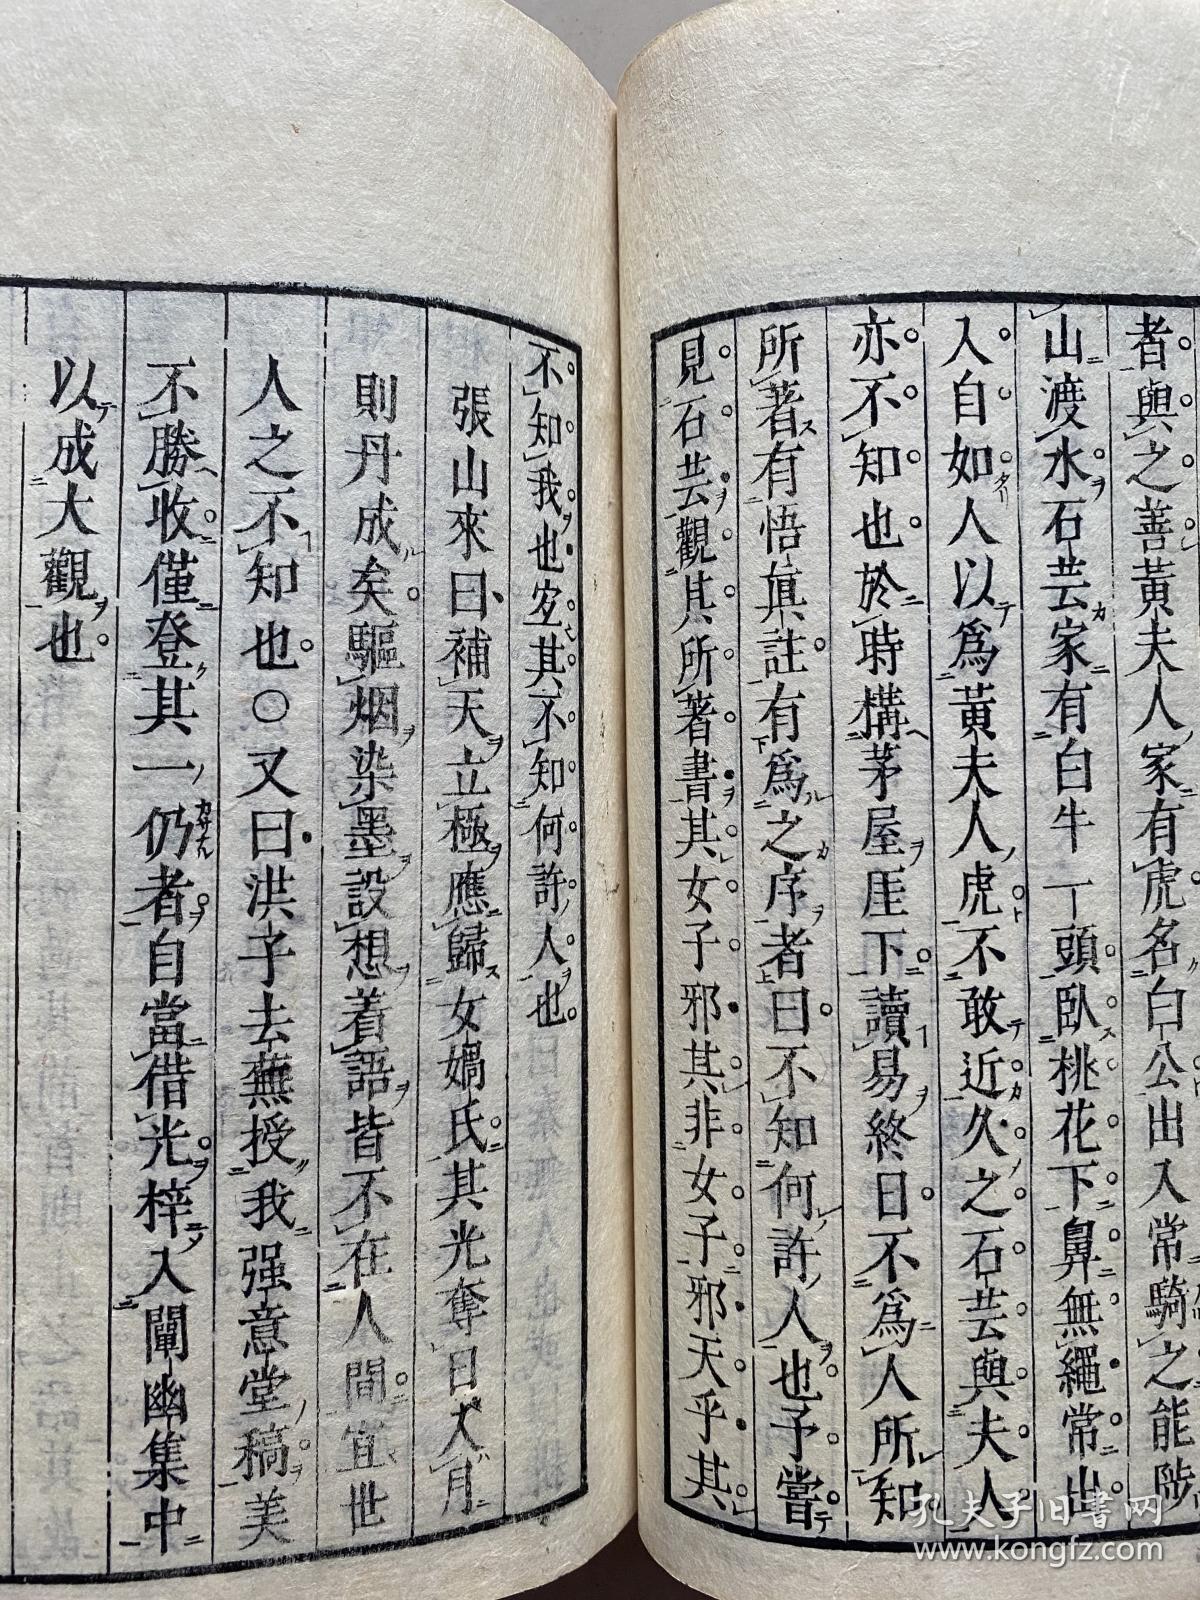 者與之善黃夫人家有虎名白公出入常騎之能陟
山渡水石芸家有白牛一頭臥桃花下鼻無繩常出
入自如人以爲黃夫人虎不敢近久之石芸與夫人
亦不知也於時構茅屋厓下讀易終日不爲人所知
所著有悟眞註有爲之序者曰不知何許人也予嘗
見石芸觀其所著書其女子邪其非女子邪天乎其
不知我也㝎其不知何許人也
張山來曰補天立極應歸女媧氏其光奪日犬月
則丹成矣驅烟染墨設想着語皆不在人間宜世
人之不知也○又曰洪子去蕪授我强意堂稿美
不勝收僅登其一仍者自當借光梓入闡幽集中
以成大觀也
孔夫子旧书网
www.kongfz.com